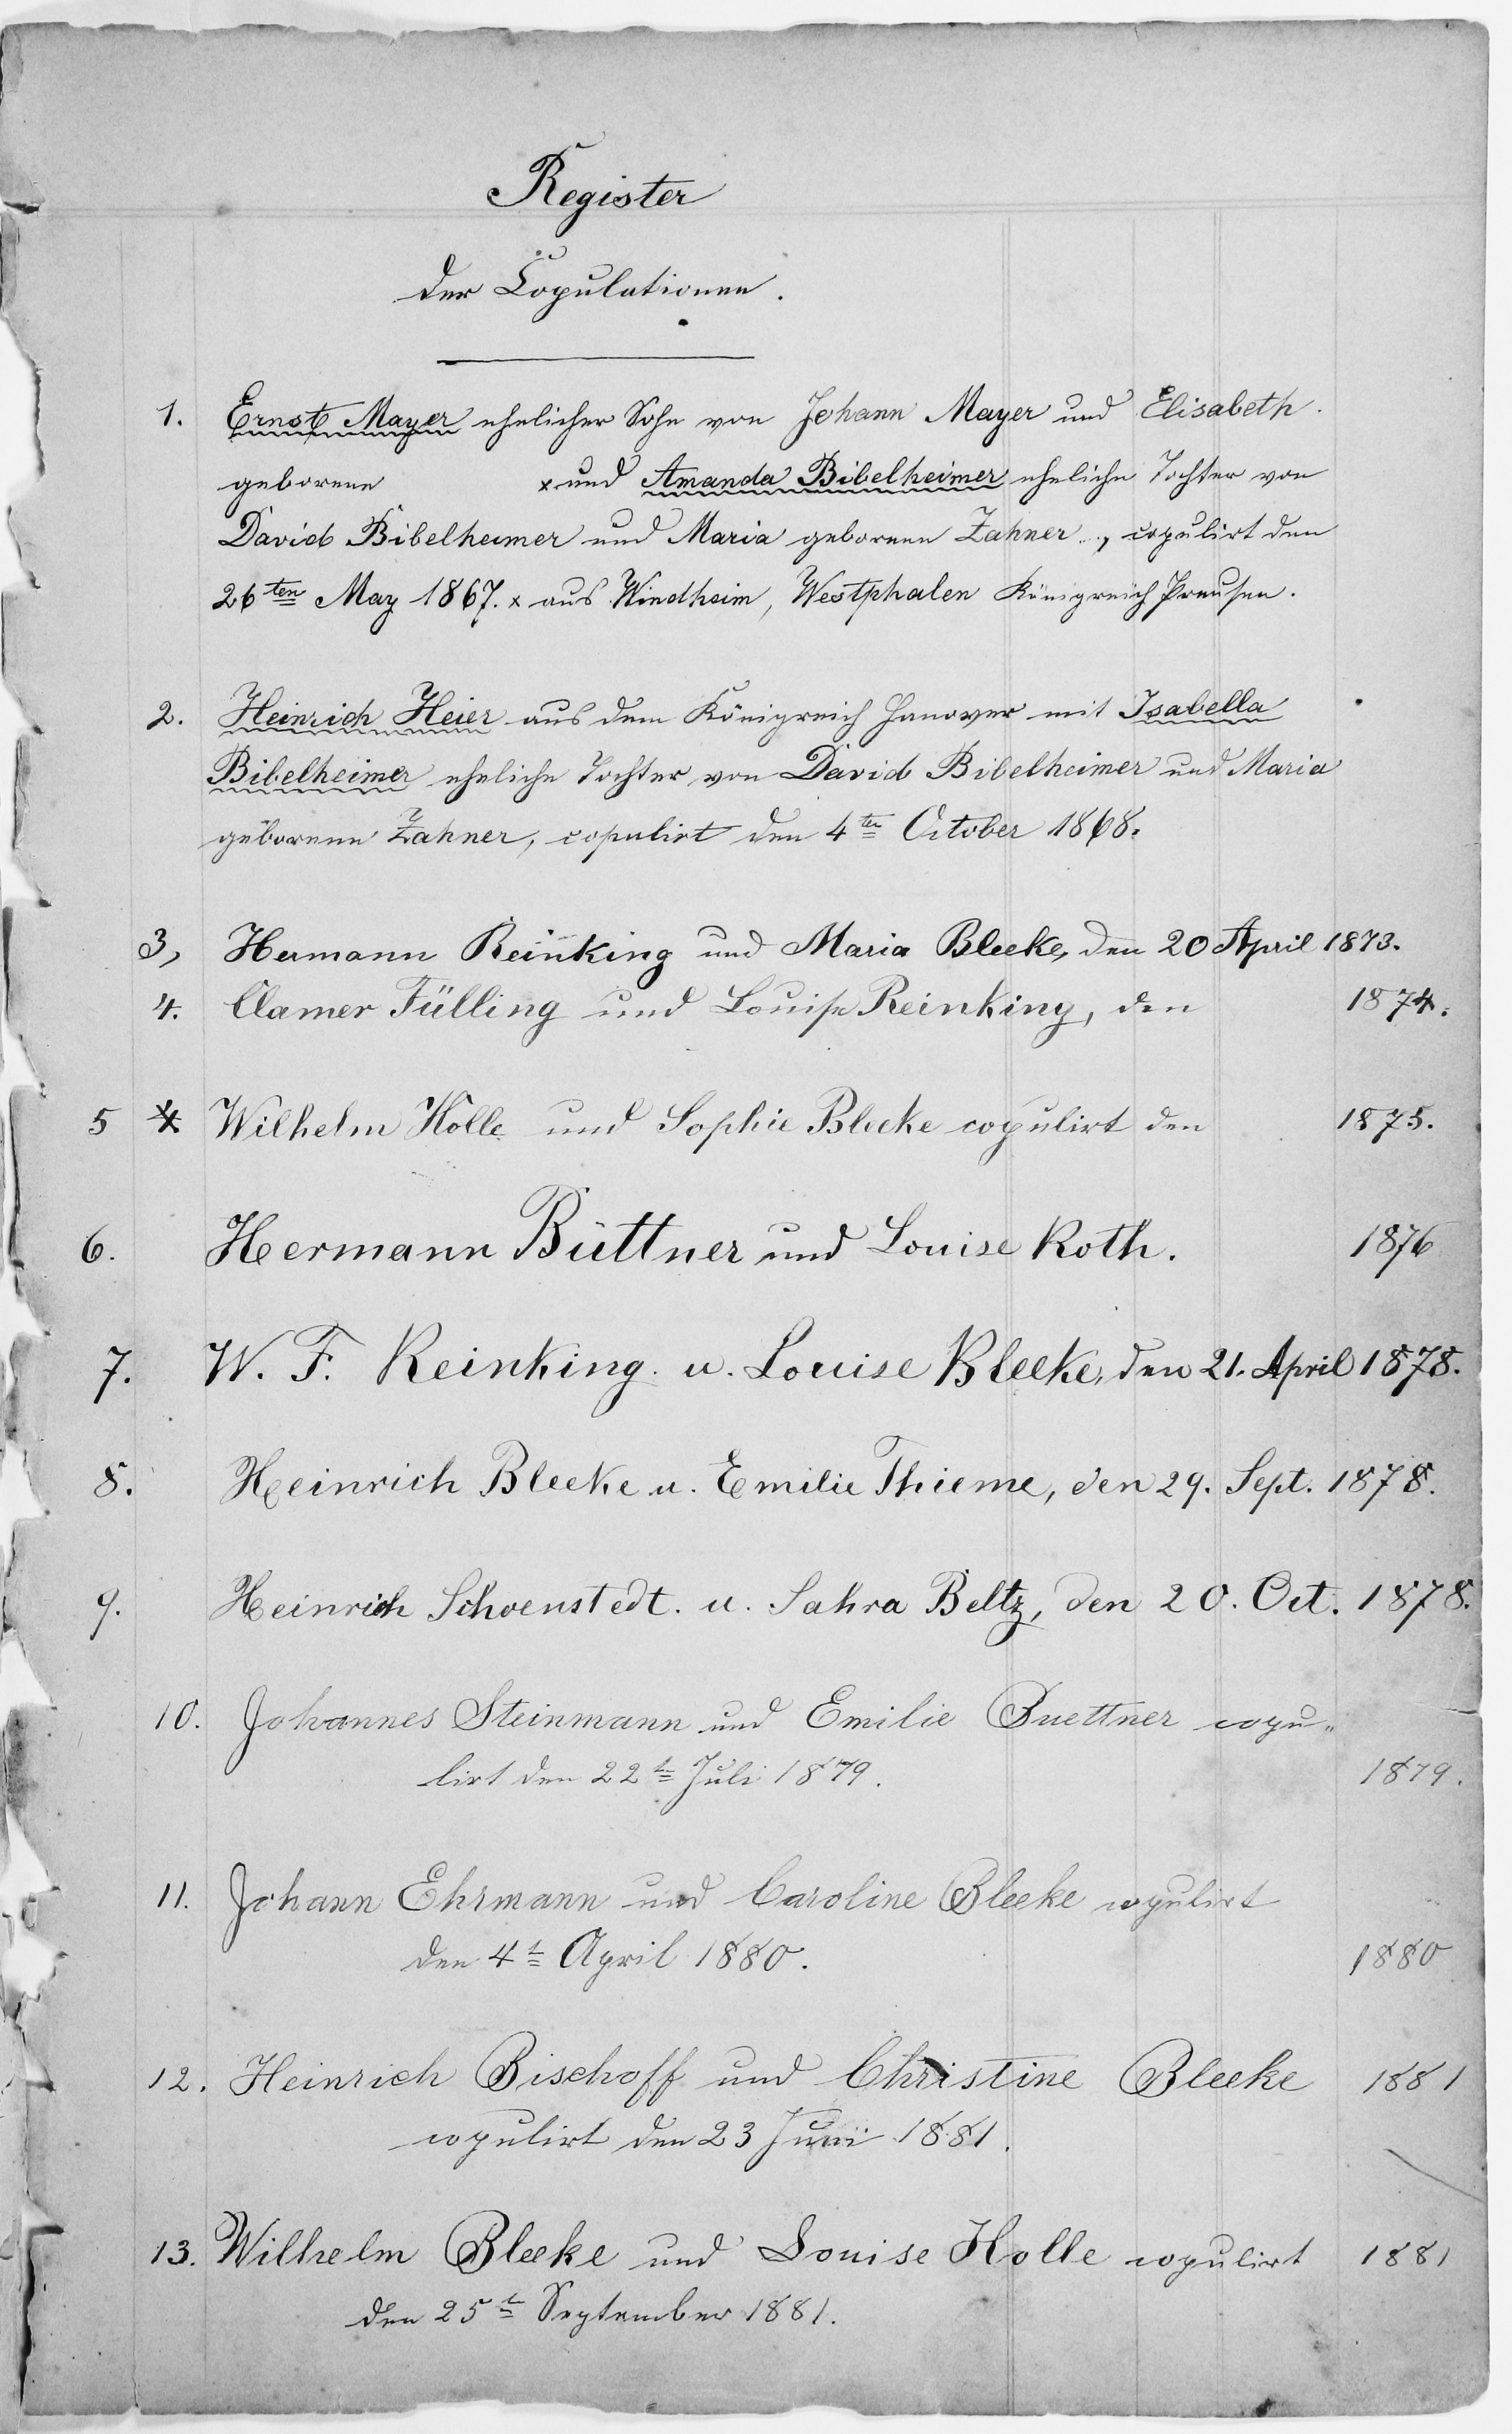 Register
der Copulationen.
1. Ernst Mayer ehelicher Sohn von Johann Mayer und Elisabeth.
geborene x und Amanda Bibelheimer eheliche Tochter von
David Bibelheimer und Maria geborene Zahner., copulirt den
26ten May 1867. x aus Windheim, Westphalen Königreich Preusen.
2. Heinrich Heier aus dem Königreich Hanover mit Isabella
Bibelheimer eheliche Tochter von David Bibelheimer und Maria
geborene Zahner, copulirt den 4ten October 1868.
3, Hermann Reinking und Maria Bleeke, den 20 April 1873.
4. Clamer Fülling und Louise Reinking, den 1874.
5 Wilhelm Holle und Sophie Bleeke copulirt den 1875.
6. Hermann Büttner und Louise Roth. 1876
7. W. F. Reinking u. Louise Bleeke, den 21. April 1878.
8. Heinrich Bleeke u. Emilie Thieme, den 29. Sept. 1878.
9. Heinrich Schoenstedt. u. Sahra Beltz, den 20. Oct. 1878.
10. Johannes Steinmann und Emilie Buettner copu„
lirt den 22t Juli 1879. 1879.
11. Johann Ehrmann und Caroline Bleeke copulirt
den 4t April 1880. 1880
12. Heinrich Bischoff und Christine Bleeke 1881
copulirt den 23 Juni 1881.
13. Wilhelm Bleeke und Louise Holle copulirt 1881
den 25t September 1881.